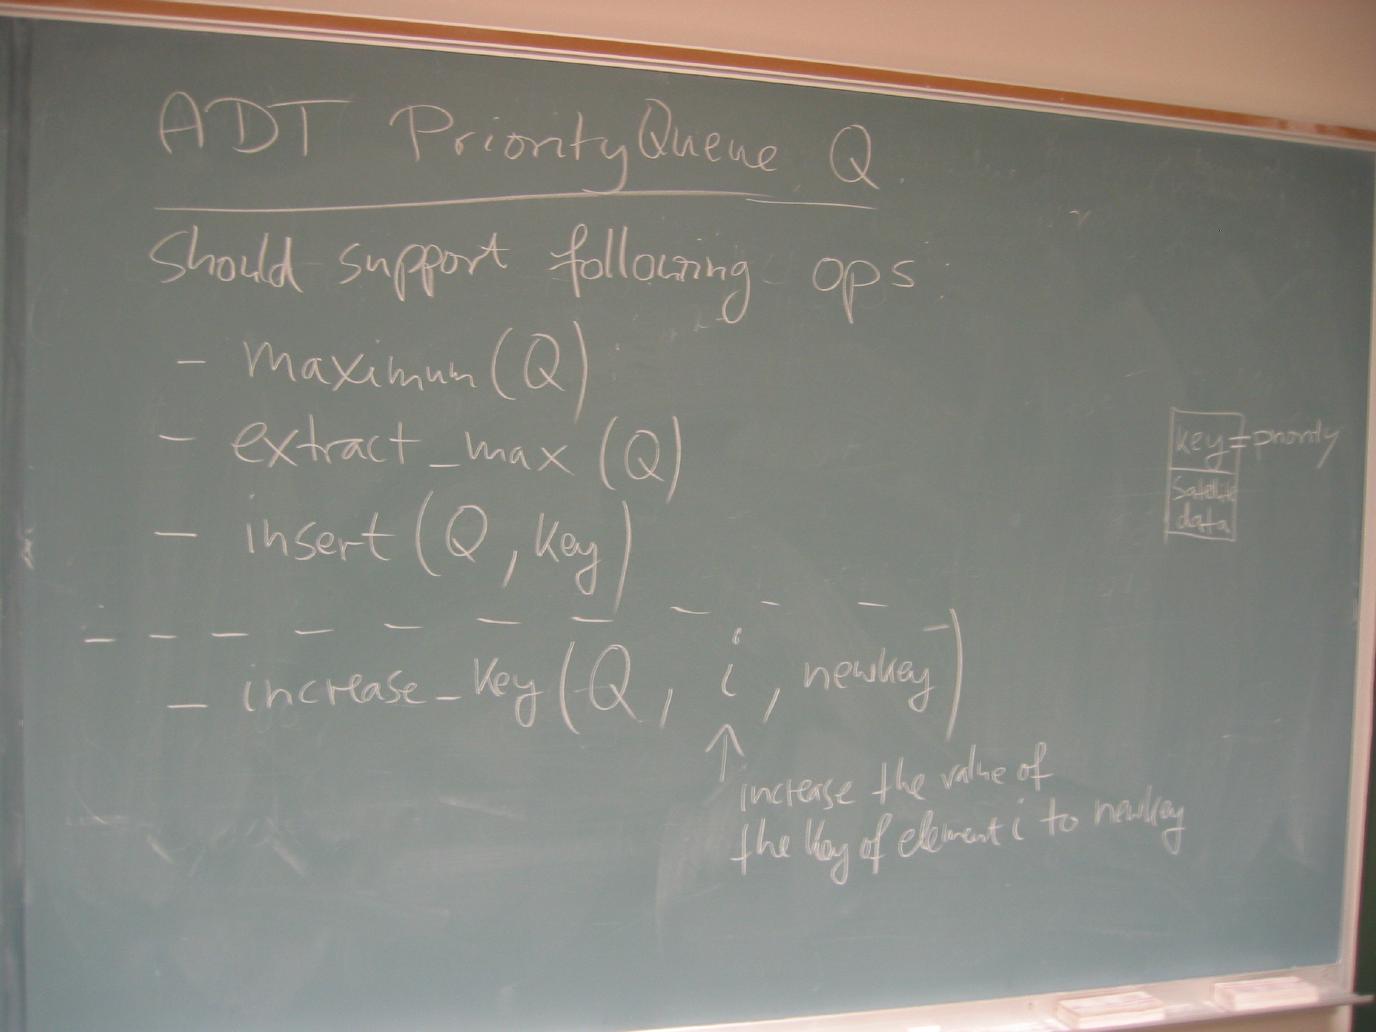 ADT PriorityQueue Q
Should support following ops:
- maximum(Q)
- extract_max (Q)
- insert (Q, key)
- increase_key (Q, i, newkey)
↑
increase the value of
the key of element i to newkey
key = priority
Satellite
data